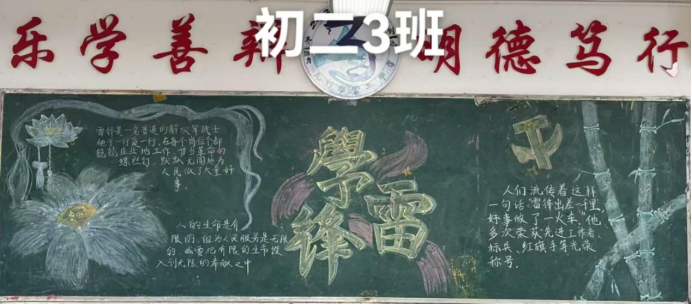 乐学善辩 明德笃行
初二3班
雷锋是一名普通的解放军战士
他干一行爱一行,在每个岗位上都
兢兢业业地工作,甘当革命的
螺丝钉,默默无闻地为
人民做了大量好
事。
人的生命是有
限的,但为人民服务是无限
的,我要把有限的生命投
入到无限的奉献之中
學
雷
锋
人们流传着这样
一句话"雷锋出差一千里
好事做了一火车"他
多次荣获先进工作者,
标兵、红旗手等光荣
称号。